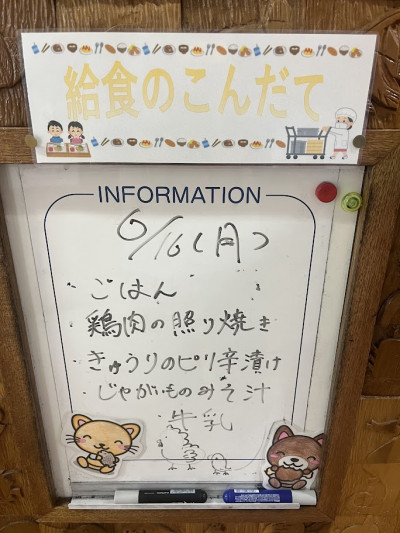 給食のこんだて
INFORMATION
6/16(月)
・ごはん
・鶏肉の照り焼き
・きゅうりのピリ辛漬け
・じゃがものみそ汁
・牛乳